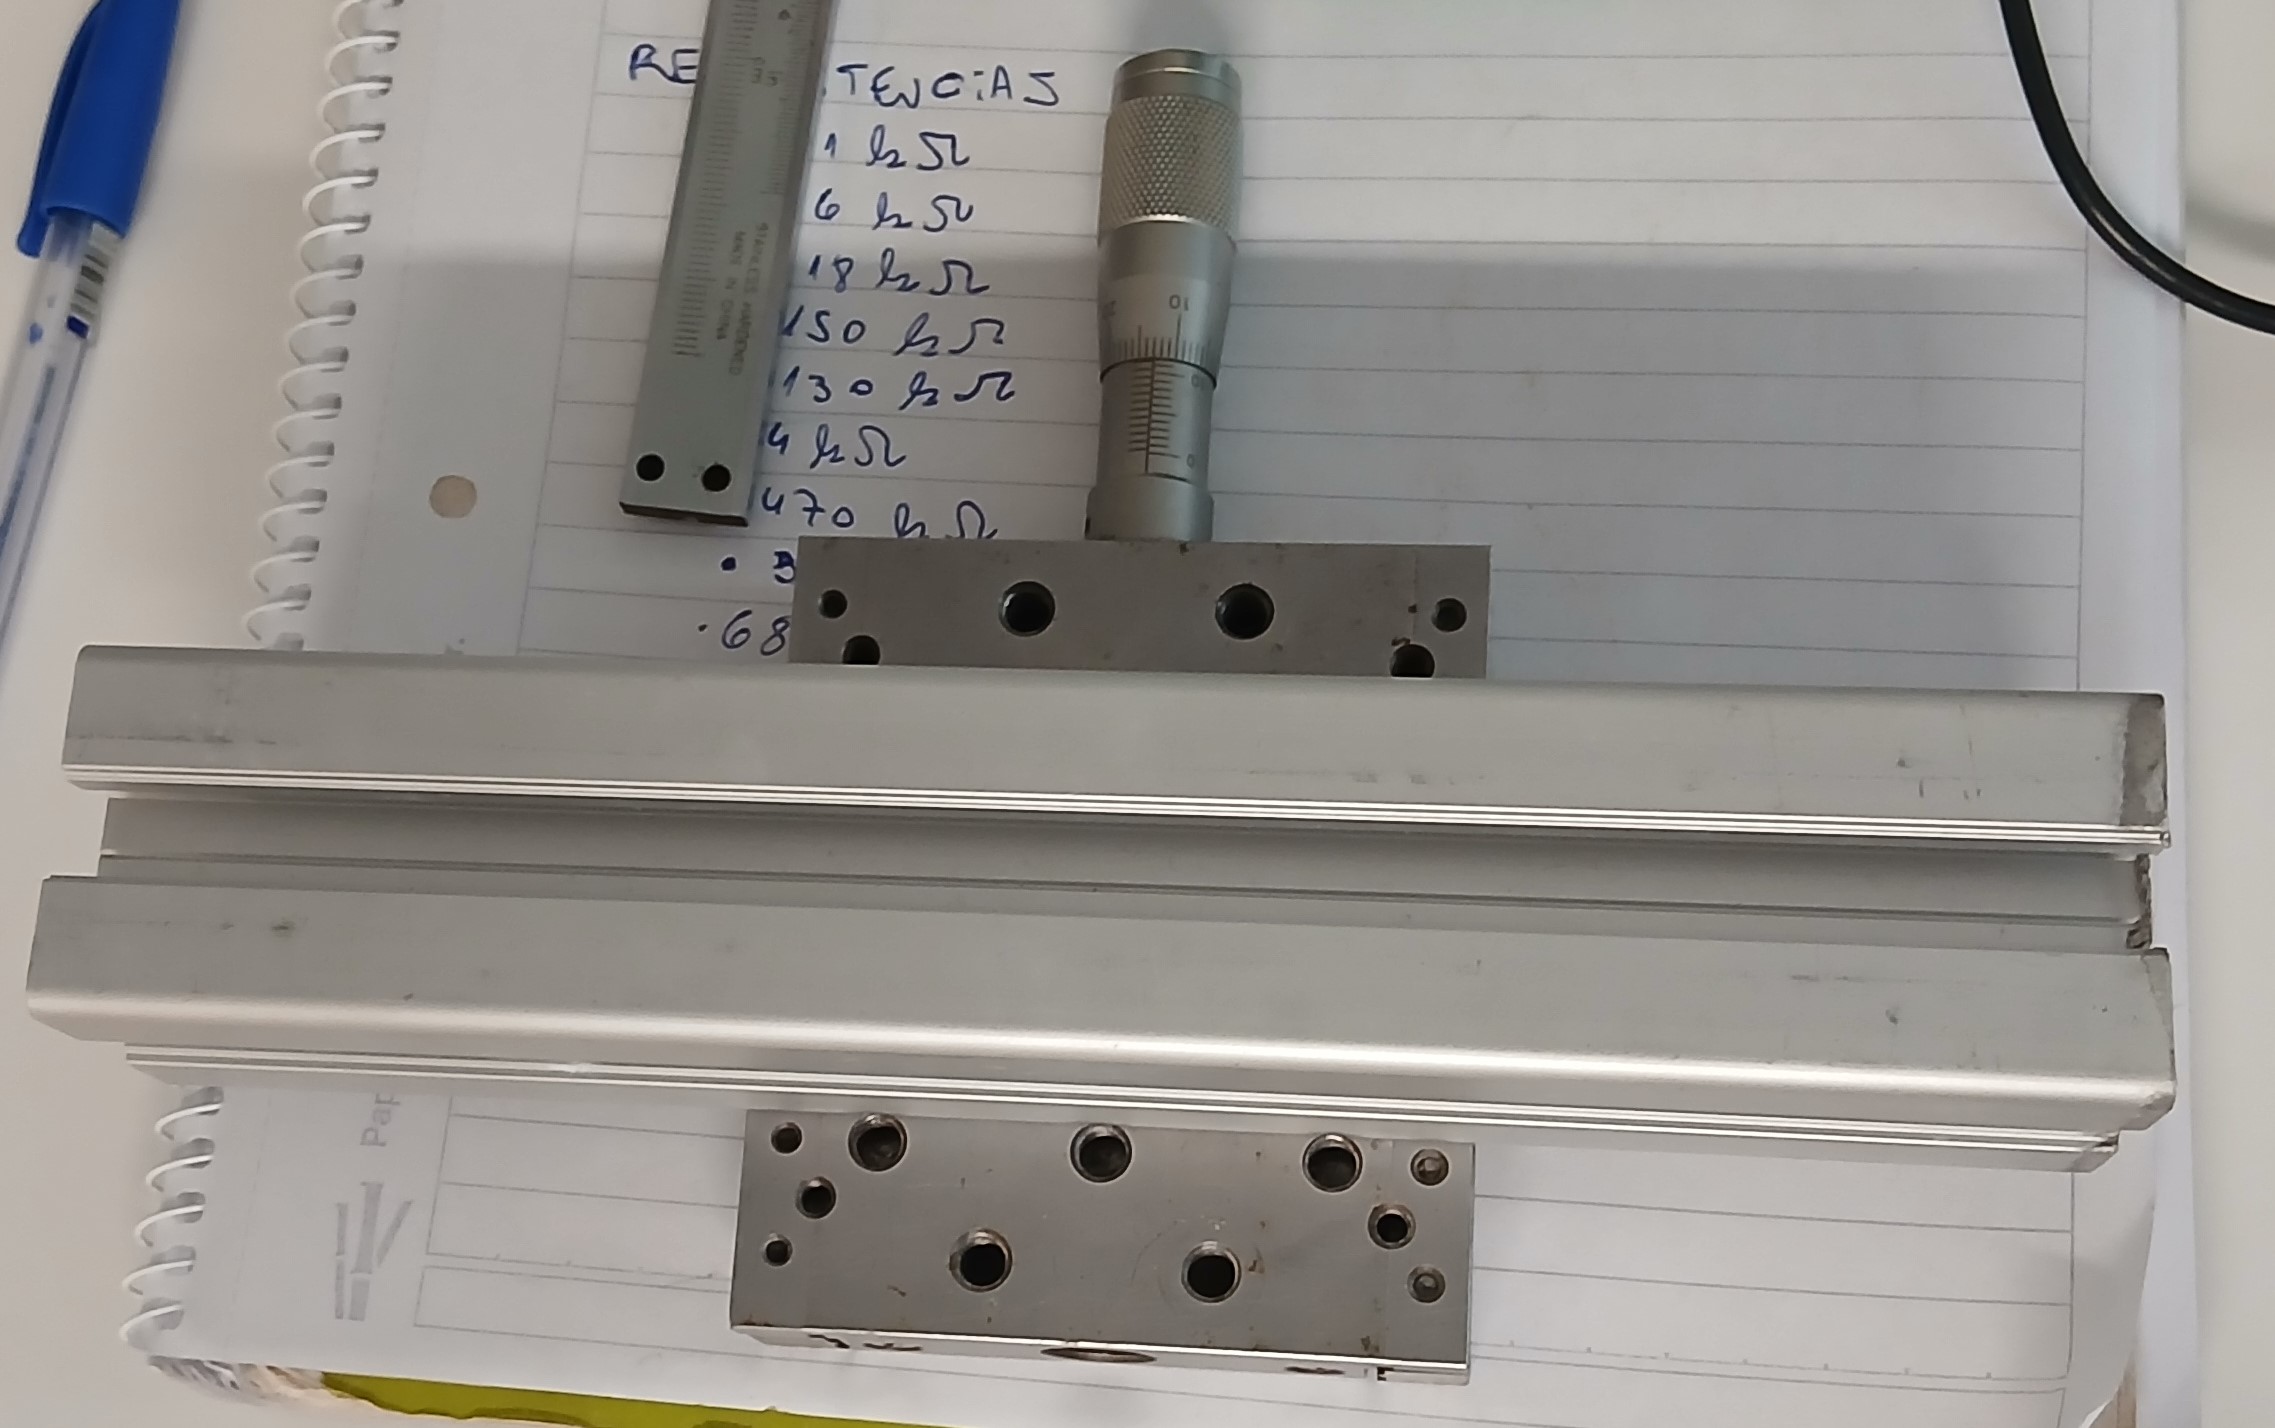 RE TENCiAS
1 kΩ
6 kΩ
18 kΩ
150 kΩ
130 kΩ
4 kΩ
470 kΩ
· 3
· 68
STAINLESS HARDENED
MADE IN CHINA
cm
10
0
Pap